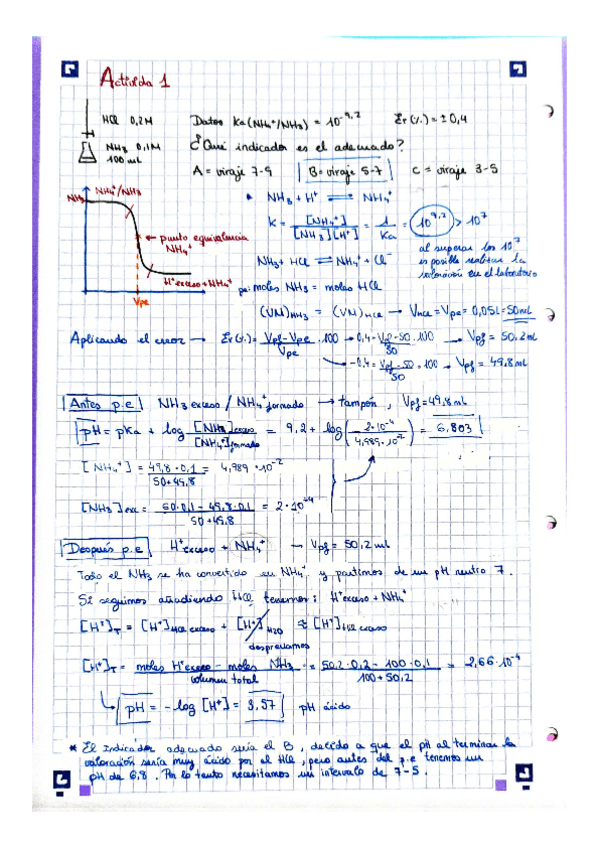 Actividad 1
HCl 0,2M
NH3 0,1M
100 mL
Datos Ka(NH4+/NH3) = 10^-9,2 Er(%) = ±0,4
¿Qué indicador es el adecuado?
A = viraje 7-9 B = viraje 5-7 C = viraje 3-5
NH3 NH4+/NH3
punto equivalencia
NH4+
H+ exceso + NH4+
Vpe
* NH3 + H+ ⇌ NH4+
K = [NH4+] / [NH3][H+] = 1/Ka = 10^9,2 > 10^7
al superar los 10^7
es posible realizar la
valoración en el laboratorio
NH3 + HCl ⇌ NH4+ + Cl-
pe: moles NH3 = moles HCl
(VM)NH3 = (VM)HCl → VHCl = Vpe = 0,05L = 50mL
Aplicando el error → Er(%) = (Vpf - Vpe)/Vpe · 100 → 0,4 = (Vpf - 50)/50 · 100 → Vpf = 50,2 mL
-0,4 = (Vpf - 50)/50 · 100 → Vpf = 49,8 mL
Antes p.e NH3 exceso / NH4+ formado → tampón, Vpf = 49,8 mL
pH = pKa + log [NH3]exceso/[NH4+]formado = 9,2 + log (2·10^-4 / 4,989·10^-2) = 6,803
[NH4+] = (49,8 · 0,1)/(50 + 49,8) = 4,989 · 10^-2
[NH3]exc = (50·0,1 - 49,8·0,1)/(50 + 49,8) = 2·10^-4
Después p.e H+ exceso + NH4+ → Vpf = 50,2 mL
Todo el NH3 se ha convertido en NH4+ y partimos de un pH neutro 7.
Si seguimos añadiendo HCl tenemos: H+ exceso + NH4+
[H+]T = [H+]HCl exceso + [H+]H2O ≈ [H+]HCl exceso
despreciamos
[H+]T = (moles H+ exceso - moles NH3)/volumen total = (50,2·0,2 - 100·0,1)/(100 + 50,2) = 2,66·10^-4
pH = -log [H+] = 3,57 pH ácido
* El indicador adecuado sería el B, decido a que el pH al terminar la
valoración sería muy ácido por el HCl, pero antes del p.e tenemos un
pH de 6,8. Por lo tanto necesitamos un intervalo de 7-5.